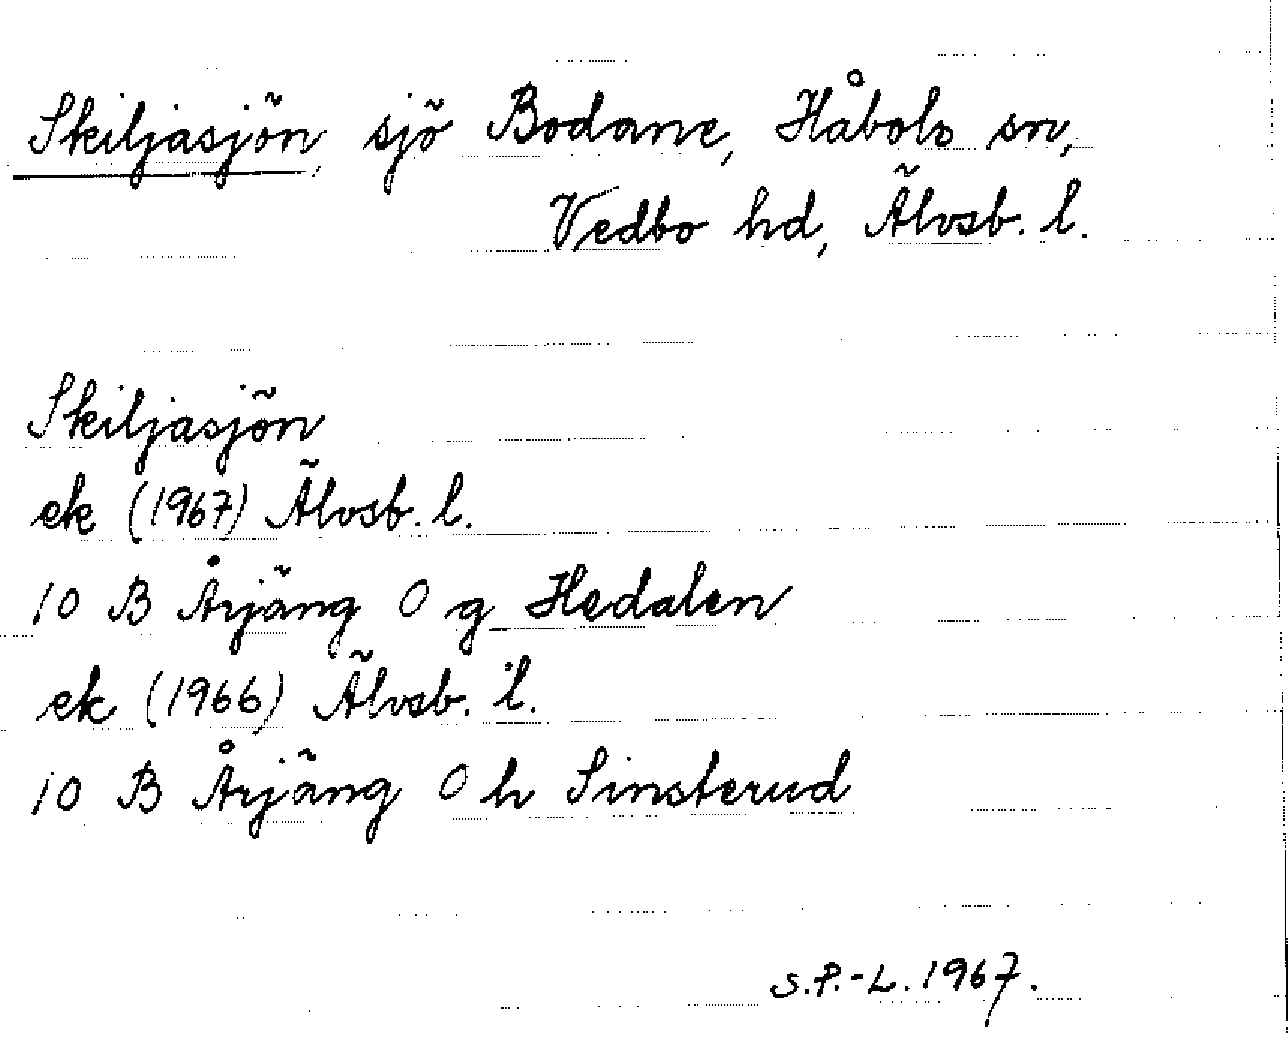 Skiljasjön, sjö Bodane, Håbols sn,
Vedbo hd, Älvsb. l.
Skiljasjön
ek (1967) Älvsb. l.
10 B Årjäng 0 g Hedalen
ek (1966) Älvsb. l.
10 B Årjäng 0 h Sinsterud
S.P.-L. 1967.